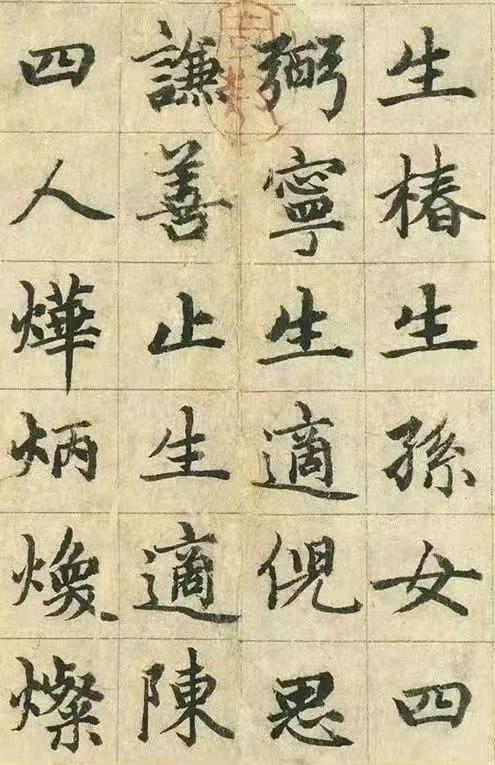 生椿生孫女四
弼寧生適倪思
謙善止生適陳
四人燁炳煥燦